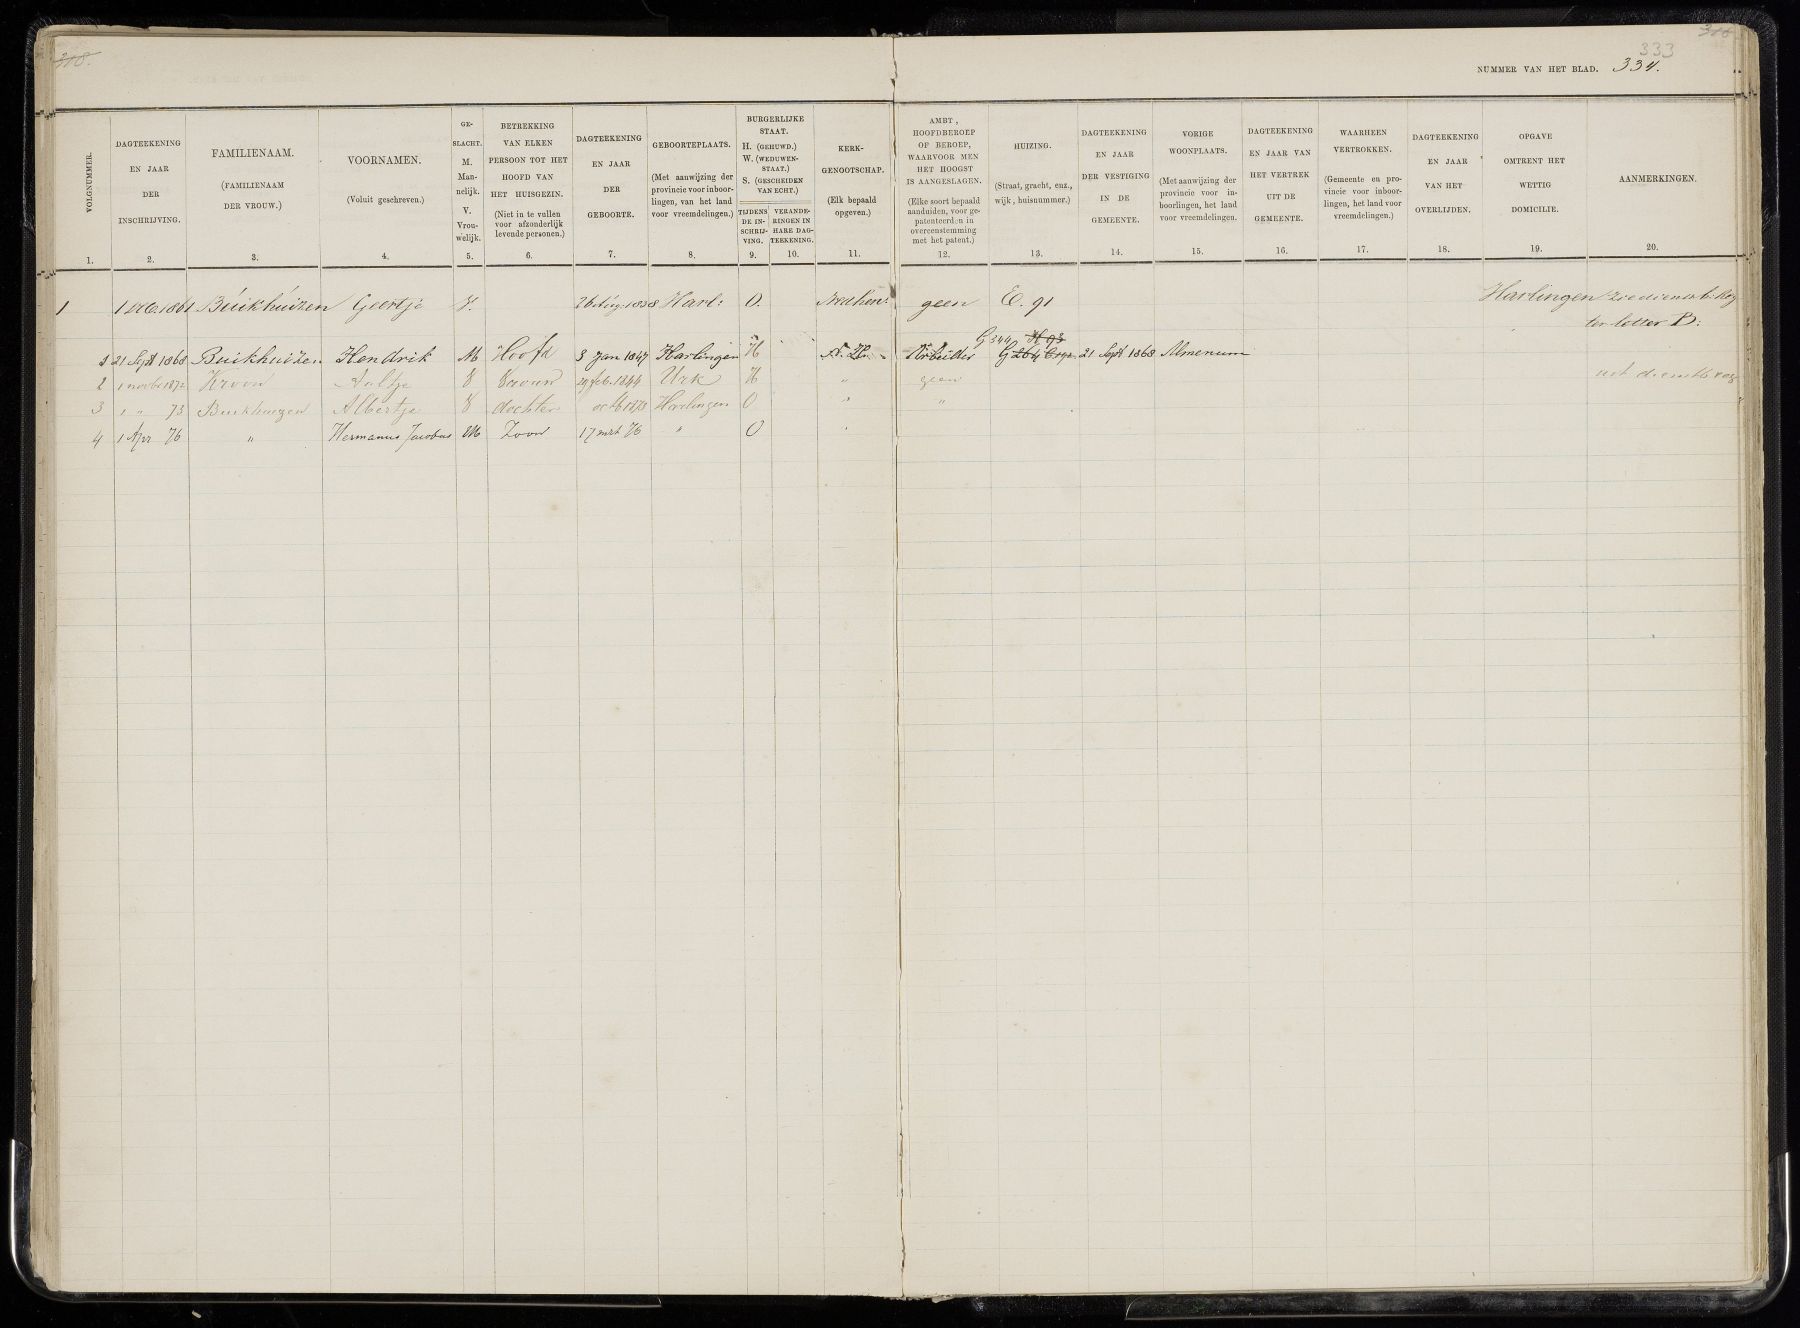 318.
333
NUMMER VAN HET BLAD. 334.
VOLGNUMMER. 1.
DAGTEEKENING EN JAAR DER INSCHRIJVING. 2.
FAMILIENAAM. (FAMILIENAAM DER VROUW.) 3.
VOORNAMEN. (Voluit geschreven.) 4.
GE-SLACHT. M. Man-nelijk. V. Vrou-welijk. 5.
BETREKKING VAN ELKEN PERSOON TOT HET HOOFD VAN HET HUISGEZIN. (Niet in te vullen voor afzonderlijk levende personen.) 6.
DAGTEEKENING EN JAAR DER GEBOORTE. 7.
GEBOORTEPLAATS. (Met aanwijzing der provincie voor inboor-lingen, van het land voor vreemdelingen.) 8.
BURGERLIJKE STAAT. H. (GEHUWD.) W. (WEDUWEN-STAAT.) S. (GESCHEIDEN VAN ECHT.)
TIJDENS DE IN-SCHRIJ-VING. 9.
VERANDE-RINGEN IN HARE DAG-TEEKENING. 10.
KERK-GENOOTSCHAP. (Elk bepaald opgeven.) 11.
AMBT, HOOFDBEROEP OF BEROEP, WAARVOOR MEN HET HOOGST IS AANGESLAGEN. (Elke soort bepaald aanduiden, voor ge-patenteerden in overeenstemming met het patent.) 12.
HUIZING. (Straat, gracht, enz., wijk, huisnummer.) 13.
DAGTEEKENING EN JAAR DER VESTIGING IN DE GEMEENTE. 14.
VORIGE WOONPLAATS. (Met aanwijzing der provincie voor in-boorlingen, het land voor vreemdelingen. 15.
DAGTEEKENING EN JAAR VAN HET VERTREK UIT DE GEMEENTE. 16.
WAARHEEN VERTROKKEN. (Gemeente en pro-vincie voor inboor-lingen, het land voor vreemdelingen.) 17.
DAGTEEKENING EN JAAR VAN HET OVERLIJDEN. 18.
OPGAVE OMTRENT HET WETTIG DOMICILIE. 19.
AANMERKINGEN. 20.
1 1 Dec. 1861 Buikhuizen Geertje V. 26 Aug. 1838 Harl: O. Ned herv: geen E. 91 Harlingen zie dienstb. Reg
ter letter B:
G 344 H 93
1 21 Sept 1868 Buikhuizen Hendrik M Hoofd 3 Jan 1847 Harlingen H N. H. Arbeider G 264 21 Sept 1868 Almenum
2 1 novbr 1872 Kroon Aaltje V Vrouw 29 feb. 1844 Urk H " geen uit dienstb reg
3 1 " 73 Buikhuizen Albertje V dochter octb 1873 Harlingen O " "
4 1 Apr 76 " Hermanus Jacobus M Zoon 17 mrt 76 " O "